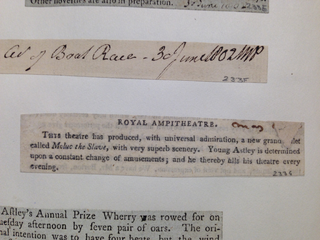 Other novelties are also in preparation.
Ad of Boat Race - 30 June 1802 MP
2335
ROYAL AMPITHEATRE.
THIS theatre has produced, with universal admiration, a new grand
called Moluc the Slave, with very superb scenery. Young Astley is determined
upon a constant change of amusements; and he thereby fills his theatre every
evening.
2336
Astley's Annual Prize Wherry was rowed for on
uesday afternoon by seven pair of oars. The ori-
inal intention was to have four heats, but the wind